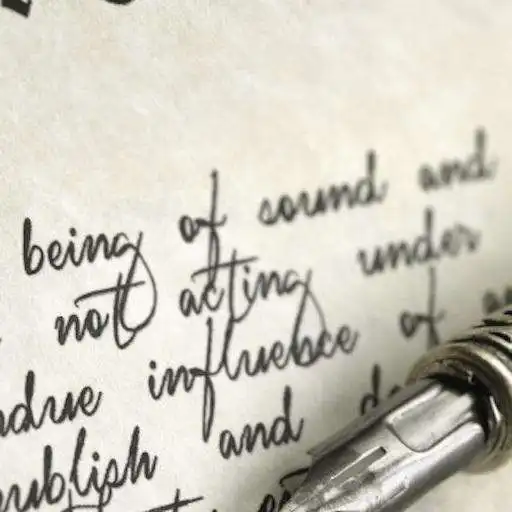 being of sound and
not acting under
influebce of
ublish and